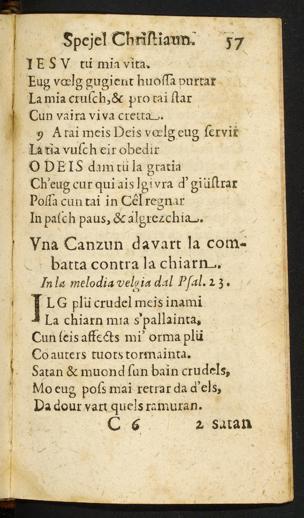 Spejel Chriſtiaun. 57
IESV tü mia vita.
Eug vœlg gugient huoſſa purtar
La mia cruſch, & pro tai ſtar
Cun vaira viva cretta.
9 A tai meis Deis vœlg eug ſervir
La tia vuſch eir obedir
O DEIS dam tü la gratia
Ch'eug cur qui ais lgivra d'giüſtrar
Poſſa cun tai in Cêl regnar
In paſch paus, & algrezchia.
Vna Canzun davart la com-
batta contra la chiarn.
In la melodia velgia dal Pſal. 23.
ILG plü crudel meis inami
La chiarn mia s'pallainta,
Cun ſeis affects mi' orma plü
Co auters tuots tormainta.
Satan & muond ſun bain crudels,
Mo eug poſs mai retrar da d'els,
Da dour vart quels ramuran.
C 6 2 satan